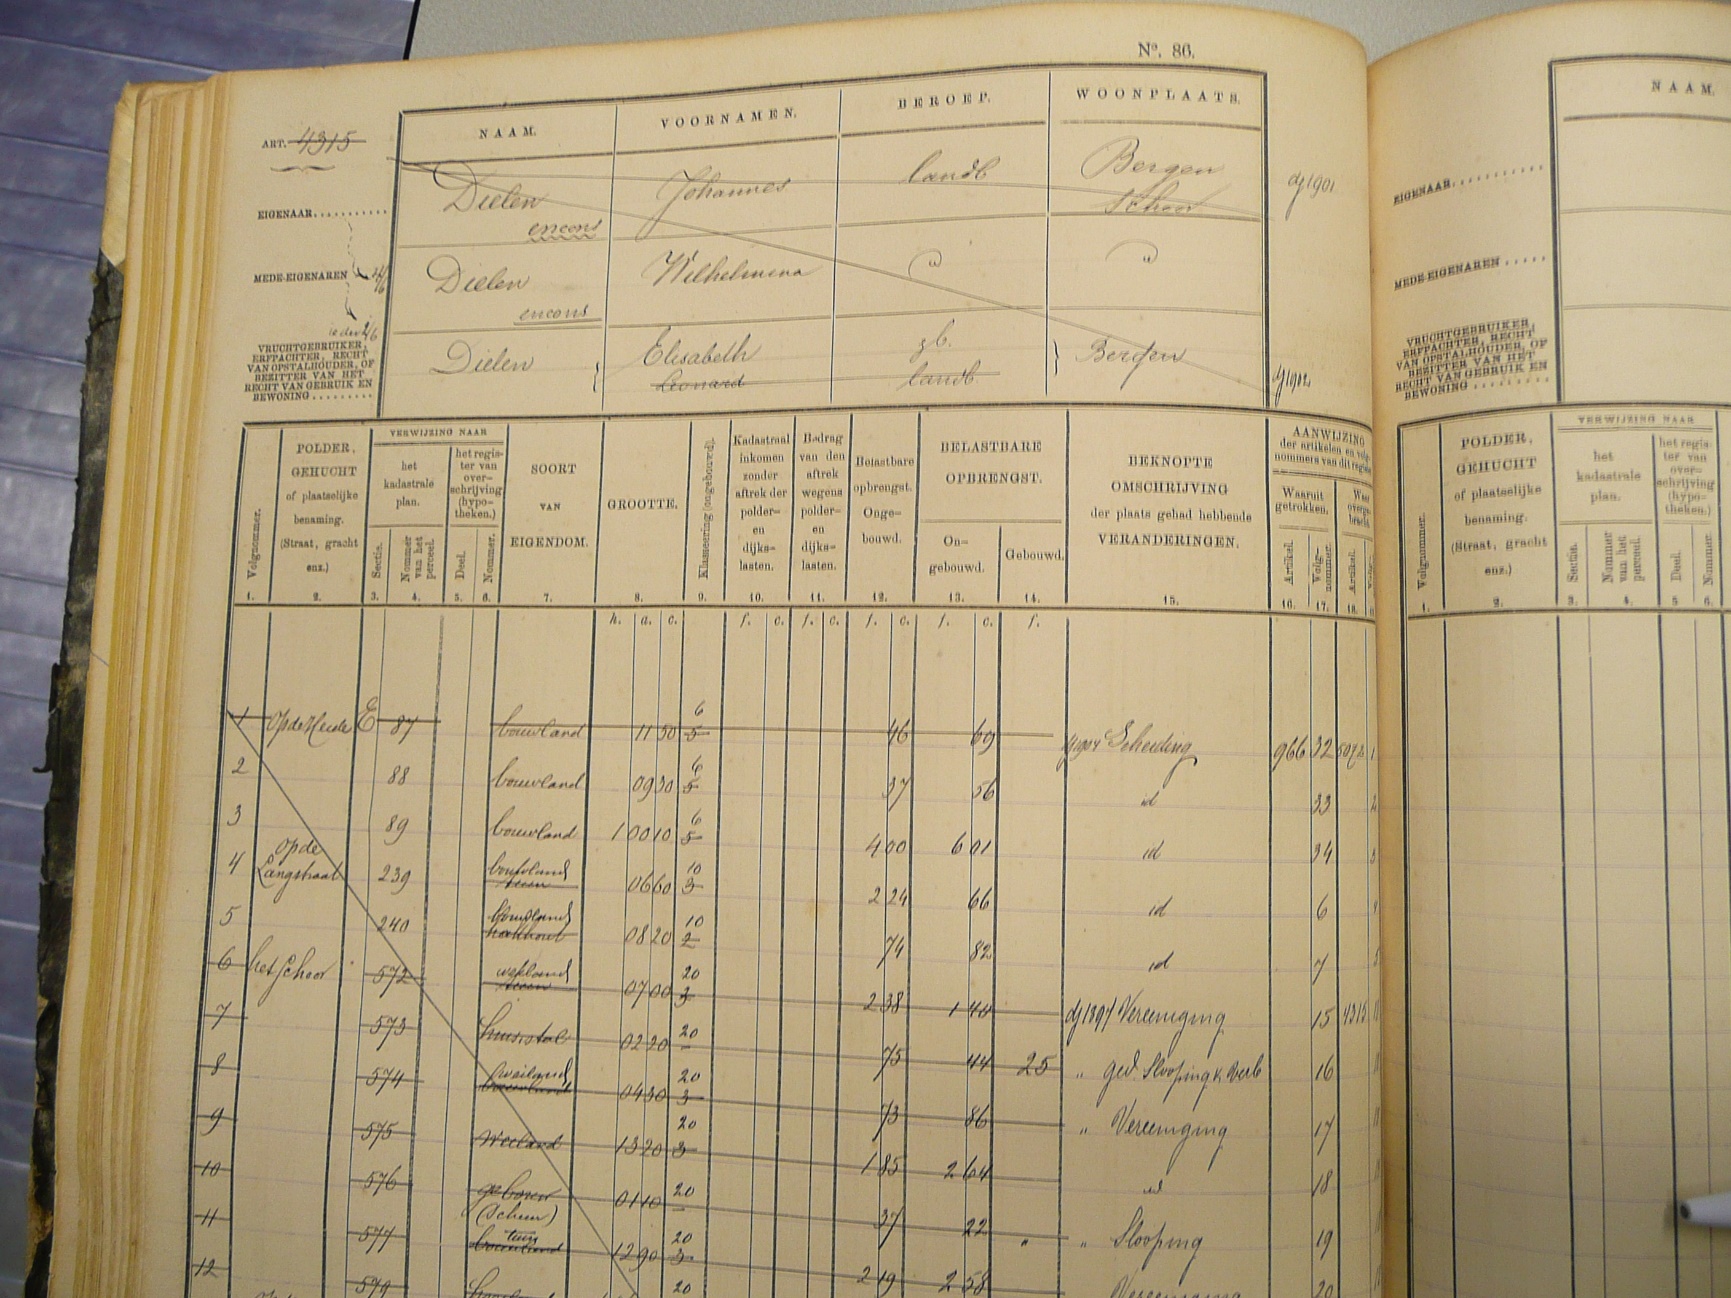 Nº. 86.
ART. 4315
NAAM. VOORNAMEN. BEROEP. WOONPLAATS.
EIGENAAR........... Dielen Johannes landb Bergen
encons Schoor
dj 1901
MEDE-EIGENAREN Dielen Wilhelmina " "
encons
ieder 2/6
VRUCHTGEBRUIKER,
ERFPACHTER, RECHT
VAN OPSTALHOUDER, OF
BEZITTER VAN HET
RECHT VAN GEBRUIK EN
BEWONING.........
Dielen Elisabeth zb. Bergen
Leonard landb.
dj 1902
Volgnommer.
POLDER,
GEHUCHT
of plaatselijke
benaming.
(Straat, gracht
enz.)
VERWIJZING NAAR
het
kadastrale
plan.
Sectie.
Nommer
van het
perceel.
het regis-
ter van
over-
schrijving
(hypo-
theken.)
Deel.
Nommer.
SOORT
VAN
EIGENDOM.
GROOTTE.
Klasseering (ongebouwd).
Kadastraal
inkomen
zonder
aftrek der
polder-
en
dijks-
lasten.
Bedrag
van den
aftrek
wegens
polder-
en
dijks-
lasten.
Belastbare
opbrengst.
Onge-
bouwd.
BELASTBARE
OPBRENGST.
On-
gebouwd.
Gebouwd.
BEKNOPTE
OMSCHRIJVING
der plaats gehad hebbende
VERANDERINGEN.
AANWIJZING
der artikelen en volg-
nommers van dit register
Waaruit
getrokken.
Artikel.
Volg-
nommer.
Artikel.
1. 2. 3. 4. 5. 6. 7. 8. 9. 10. 11. 12. 13. 14. 15. 16. 17. 18.
h. a. c. f. c. f. c. f. c. f. c. f.
1 Op de Heide E 87 bouwland 11 50 6 5 46 69 Scheiding 966 32 1
2 88 bouwland 09 30 6 5 37 56 id 33 2
3 89 bouwland 1 00 10 6 5 4 00 6 01 id 34 3
4 op de
Langstraat 239 bouwland 06 60 10 3 2 24 66 id 6
5 240 bouwland
hakhout 08 20 10 2 74 82 id 7
6 het Schoor 572 07 00 20 3 2 38 1 40 dj 1897 Vereeniging 15 4315
7 573 02 20 20 75 44 25 " ged. Slooping 16
8 574 weiland
bouwland 04 30 20 3 73 86 " Vereeniging 17
9 575 Weiland 13 20 20 3 1 85 2 64 id 18
10 576
(Schuur) 01 10 20 37 22 " " Slooping 19
11 577 tuin
bouwland 12 90 20 3 2 19 2 58 Vereeniging 20
12 20
NAAM.
EIGENAAR...........
MEDE-EIGENAREN .....
VRUCHTGEBRUIKER,
ERFPACHTER, RECHT
VAN OPSTALHOUDER, OF
BEZITTER VAN HET
RECHT VAN GEBRUIK EN
BEWONING .........
Volgnommer.
POLDER,
GEHUCHT
of plaatselijke
benaming.
(Straat, gracht
enz.)
VERWIJZING NAAR
het
kadastrale
plan.
Sectie.
Nommer
van het
perceel.
het regis-
ter van
over-
schrijving
(hypo-
theken.)
Deel.
Nommer.
1. 2. 3. 4. 5. 6.